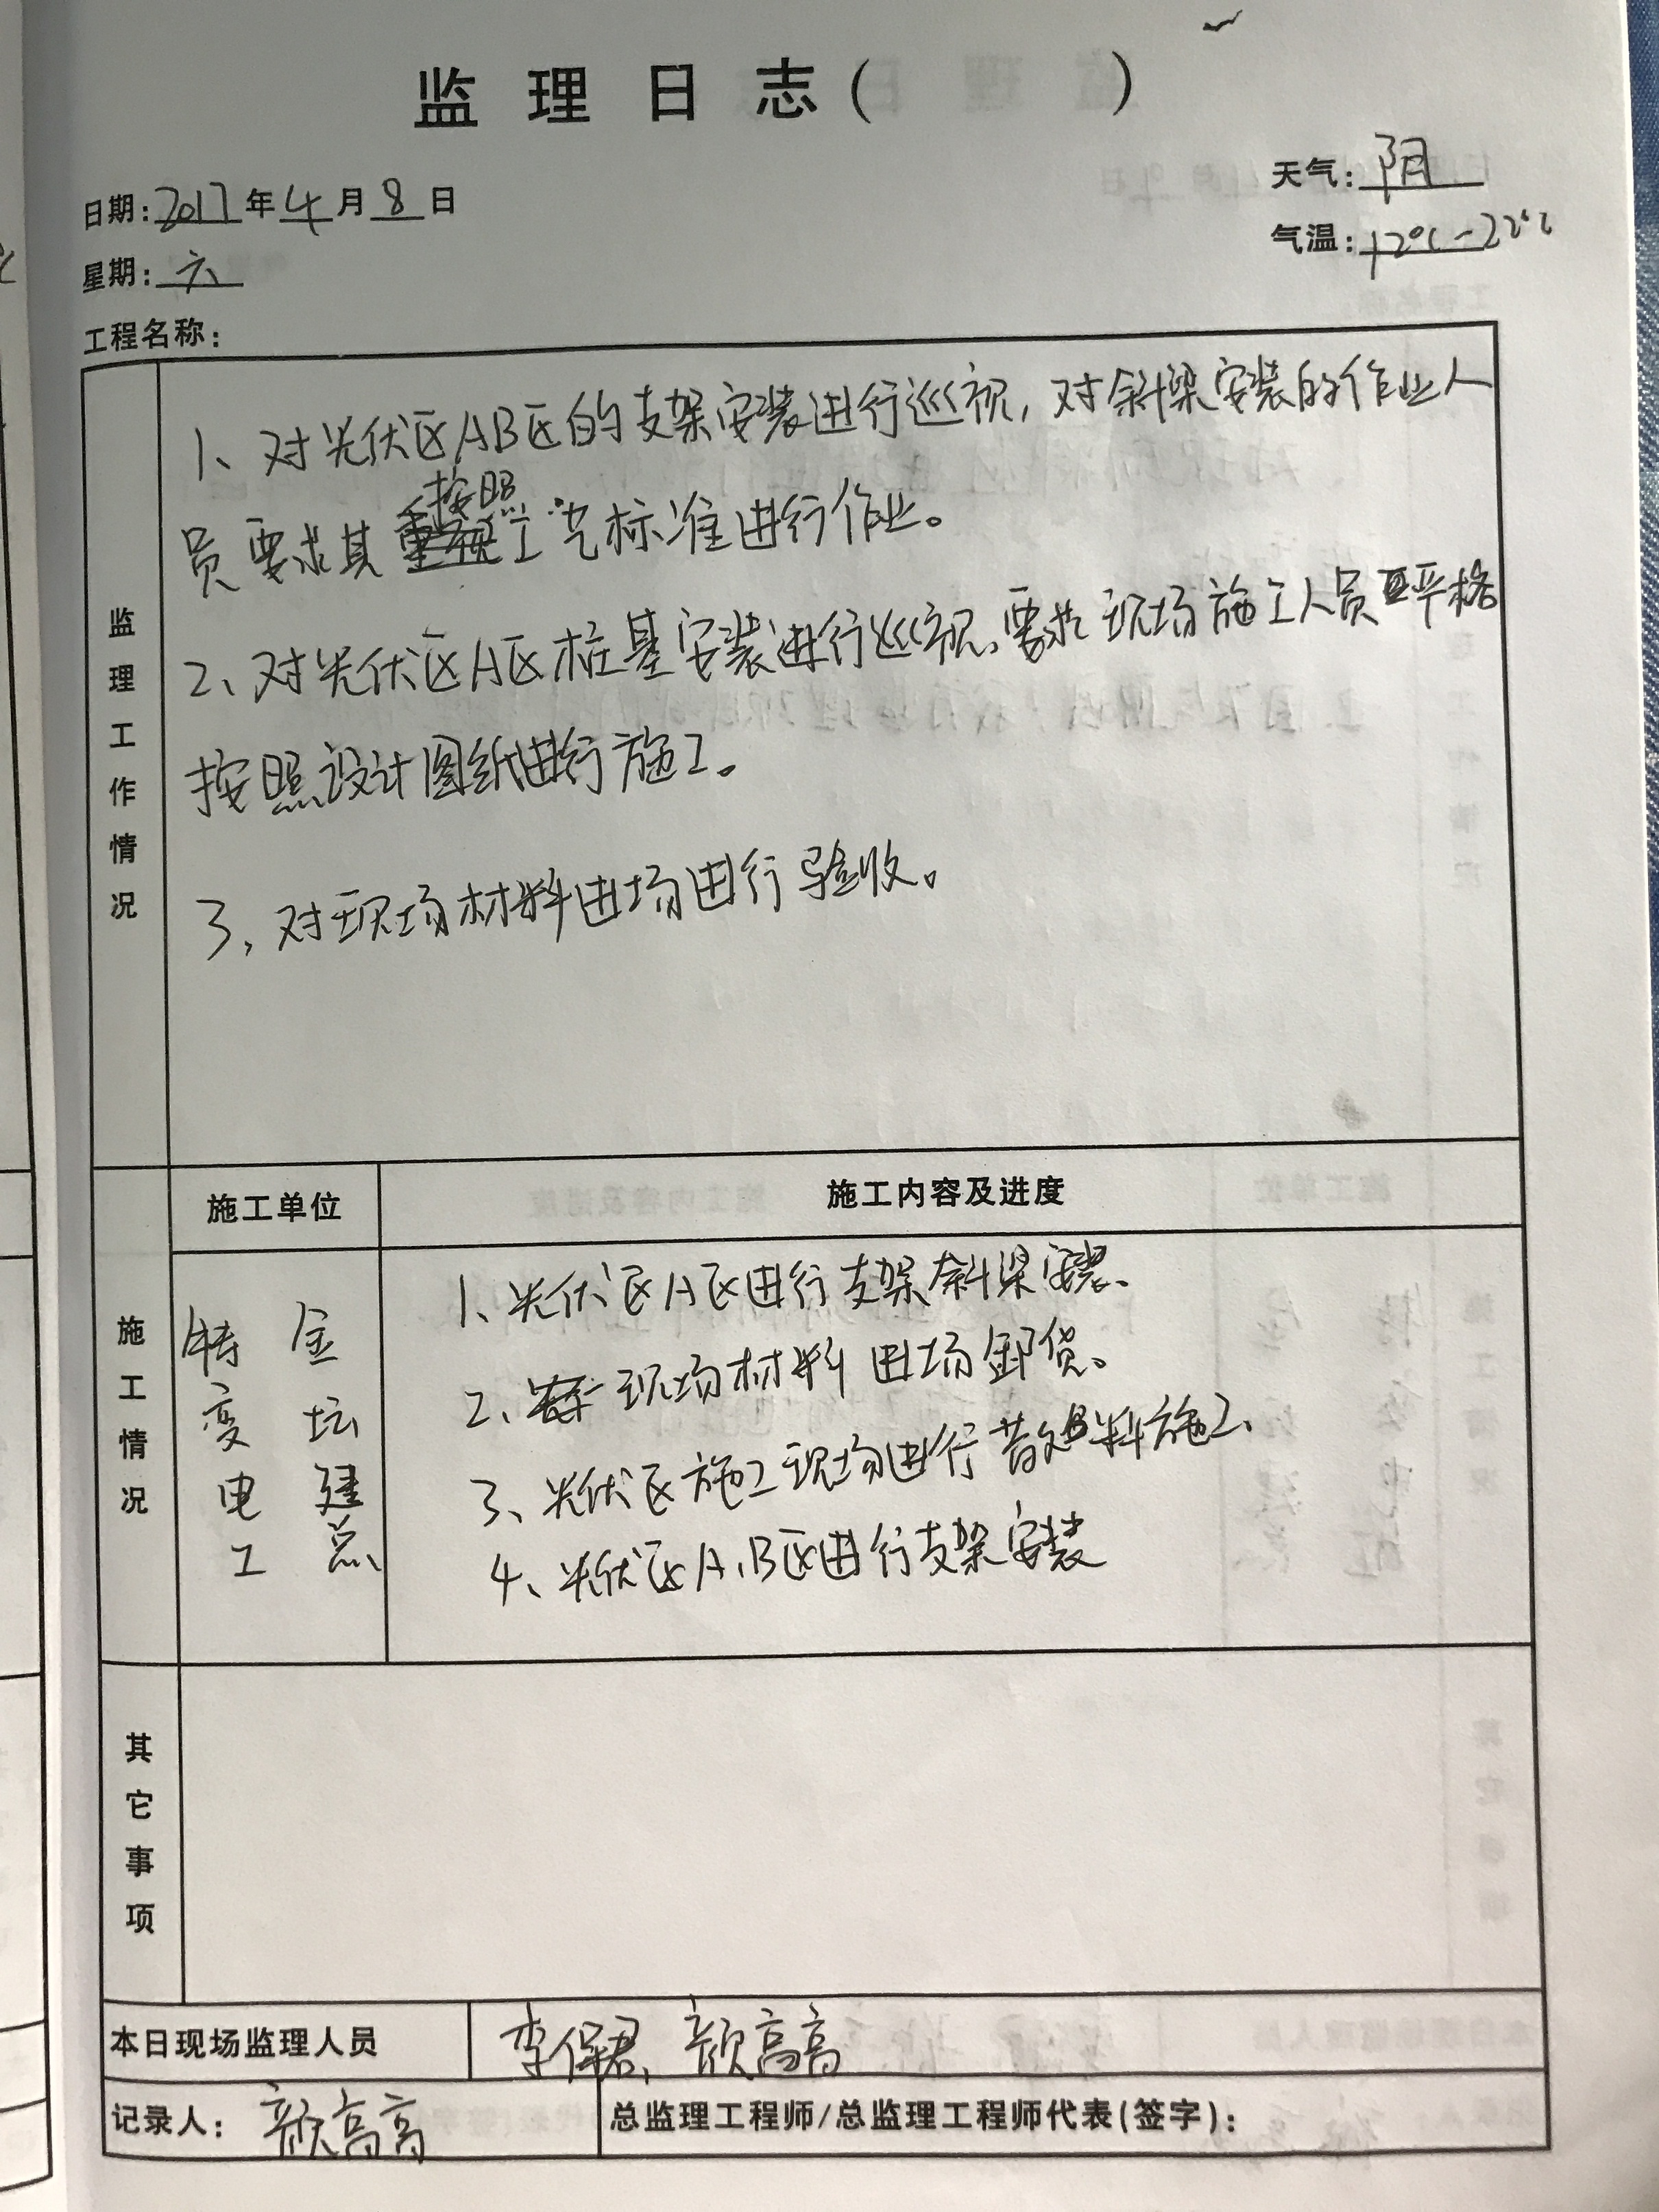 监理日志( )
日期:2017年4月8日
天气:阴
星期:六
气温:12℃-22℃
工程名称:
监理工作情况
1、对光伏区AB区的支架安装进行巡视,对斜梁安装的作业人
员要求其按照工艺标准进行作业。
2、对光伏区A区桩基安装进行巡视,要求现场施工人员严格
按照设计图纸进行施工。
3、对现场材料进场进行验收。
施工单位
施工内容及进度
施工情况
特变电工
金坛建总
1、光伏区A区进行支架斜梁安装、
2、现场材料进场卸货。
3、光伏区施工现场进行施工、
4、光伏区A、B区进行支架安装
其它事项
本日现场监理人员
李保君、颜高高
记录人:颜高高
总监理工程师/总监理工程师代表(签字):